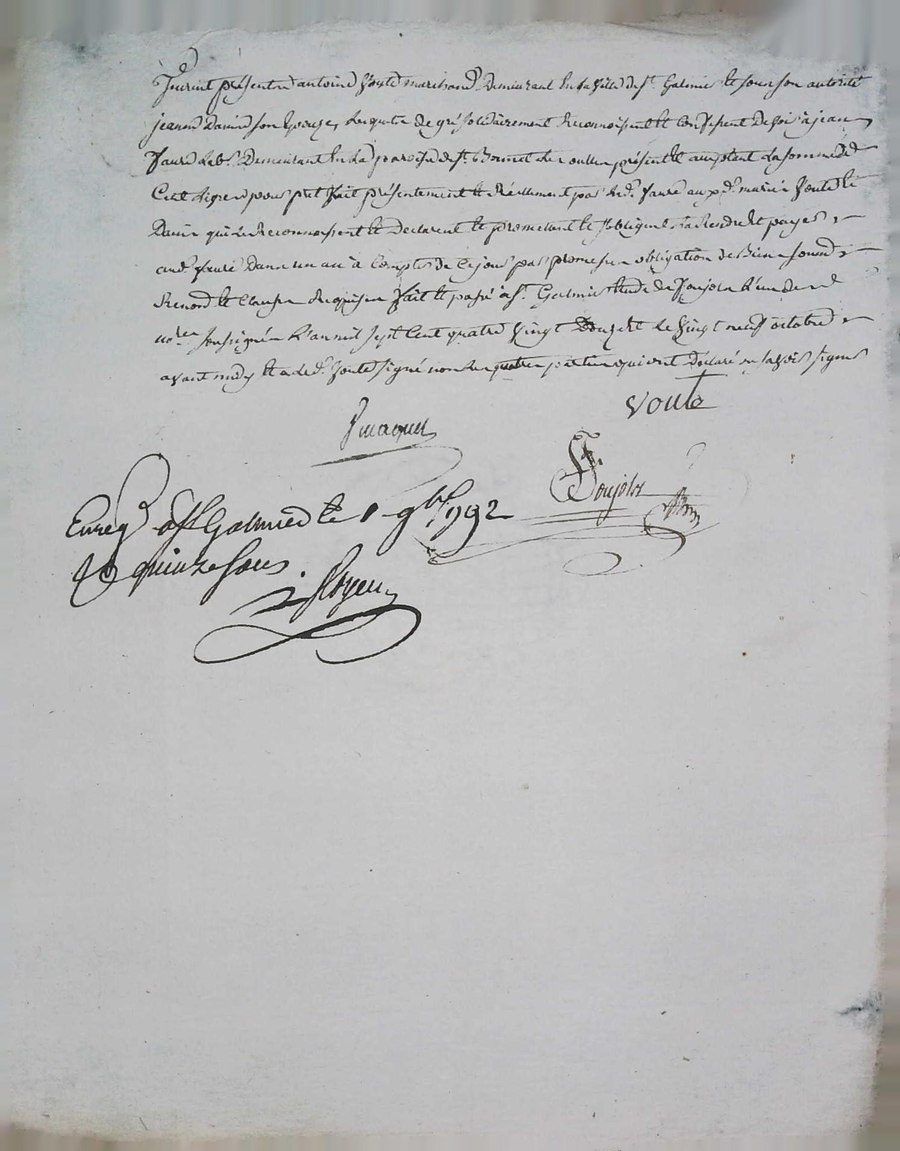 furent présents antoine Voute marchand Demeurant En la Ville de st Galmier et sous son autorité
jeanne Davier son Epouze, Lesquels de gré solidairement Reconnoissent et Confessent Devoir à jean
faure Demeurant En La paroisse de st Bonnet présent et acceptant La somme de
pour pret fait présentement et Réellement par led. faure auxd. mariés Voute et
Davier qui Le Reconnoissent et Declarent et promettent et s'obligent La Rendre et payer
aud. faure Dans un an à Compter de Ce jour par promesse obligation de Biens soumis
Renond. et Clauses Requises fait et passé à st. Galmier Etude de Poujola L'un de
nores soussignés L'an mil sept Cent quatre Vingt Douze et Le Vingt neuf octobre
avant midy et a led. Voute signé non les autres parties qui ont Déclaré ne savoir signer
voute
Poujola
Enregé à st Galmier le 1 9bre 1792
R quinze sous